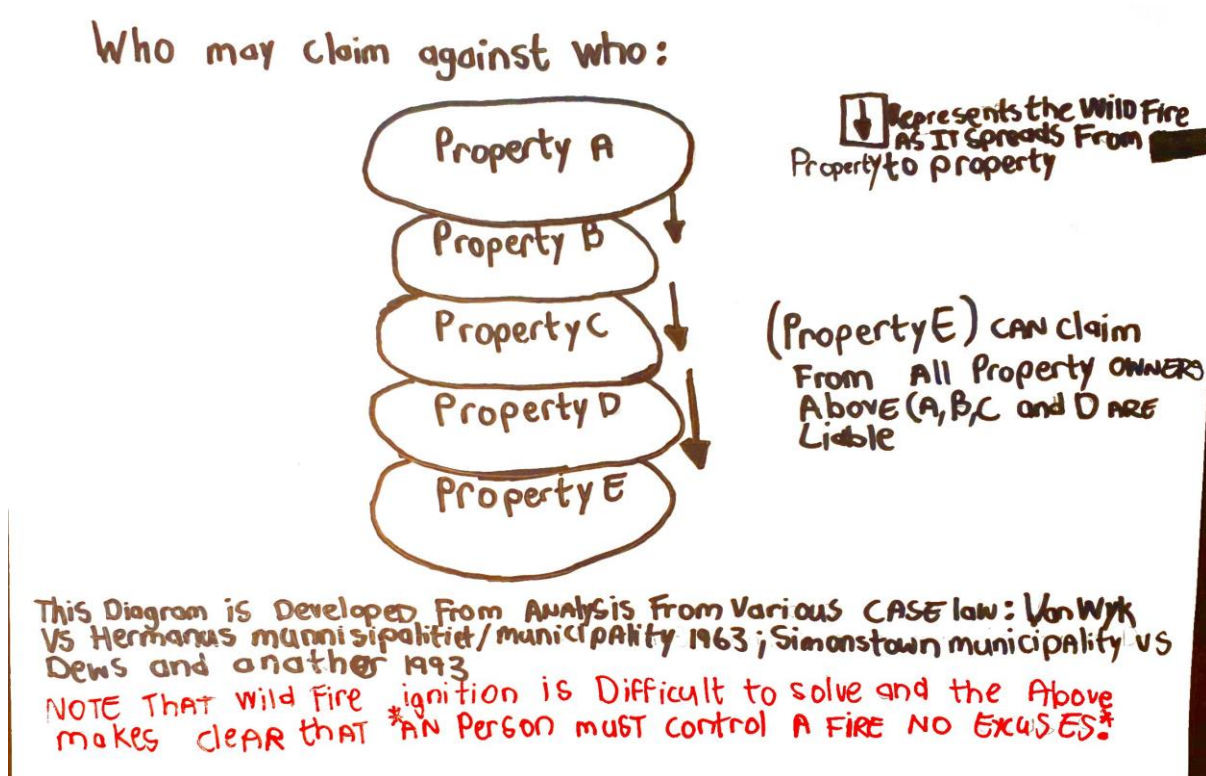 Who may claim against who:
Property A
Represents the Wild Fire
As IT Spreads From
Property to property
Property B
Property C
(Property E) CAN claim
From All Property OWNERS
Above (A, B, C and D ARE
Liable
Property D
Property E
This Diagram is Developed From Analysis From Various CASE law: Van Wyk
Vs Hermanus munnisipalitiet/municipality 1963; Simonstown municipality vs
Dews and anather 1993
NOTE THAT Wild Fire ignition is Difficult to solve and the Above
makes cleAR thAT *AN Person must control A FIRE NO EXCUSES*